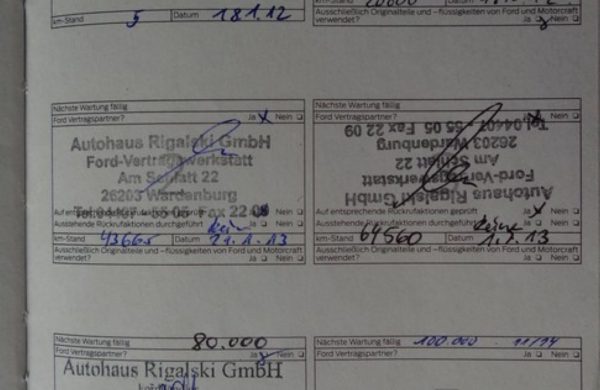 km-Stand 5 Datum 18.1.12
km-Stand 20000 Datum
Ausschließlich Originalteile und -flüssigkeiten von Ford und Motorcraft
verwendet? Ja Nein
Nächste Wartung fällig
Ford Vertragspartner? Ja Nein
Autohaus Rigalski GmbH
Ford-Vertragswerkstatt
Am Schlatt 22
26203 Wardenburg
Tel. 04407 - 55 05 Fax 22 09
Auf entsprechende Rückrufaktionen geprüft Ja Nein
Ausstehende Rückrufaktionen durchgeführt keine Nein
km-Stand 43665 Datum 29.1.13
Ausschließlich Originalteile und -flüssigkeiten von Ford und Motorcraft
verwendet? Ja Nein
Nächste Wartung fällig
Ford Vertragspartner? Ja Nein
Autohaus Rigalski GmbH
Ford-Vertragswerkstatt
Am Schlatt 22
26203 Wardenburg
Tel. 04407 - 55 05 Fax 22 09
Auf entsprechende Rückrufaktionen geprüft Ja Nein
Ausstehende Rückrufaktionen durchgeführt keine Nein
km-Stand 64560 Datum 13
Ausschließlich Originalteile und -flüssigkeiten von Ford und Motorcraft
verwendet? Ja Nein
Nächste Wartung fällig 80.000
Ford Vertragspartner? Ja Nein
Autohaus Rigalski GmbH
Nächste Wartung fällig 100 000 11/14
Ford Vertragspartner? Ja Nein